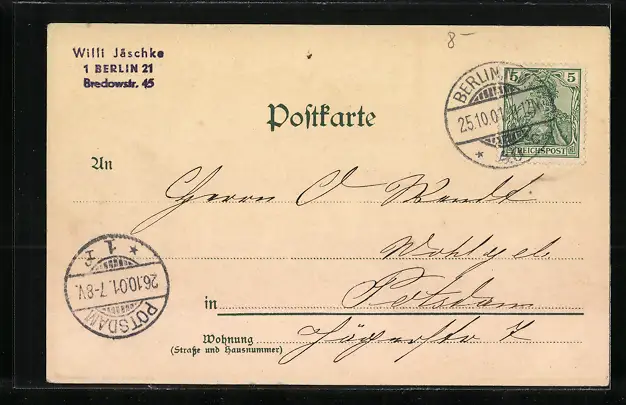 8-
Willi Jäschke
1 BERLIN 21
Bredowstr. 45
BERLIN
25.10.01.
5 5
REICHSPOST
Postkarte
An
Herrn O Wendt
Wohlgeb
in Potsdam
Wohnung Jägerstr 7
(Straße und Hausnummer)
POTSDAM
26.10.01.7-8V.
* 1